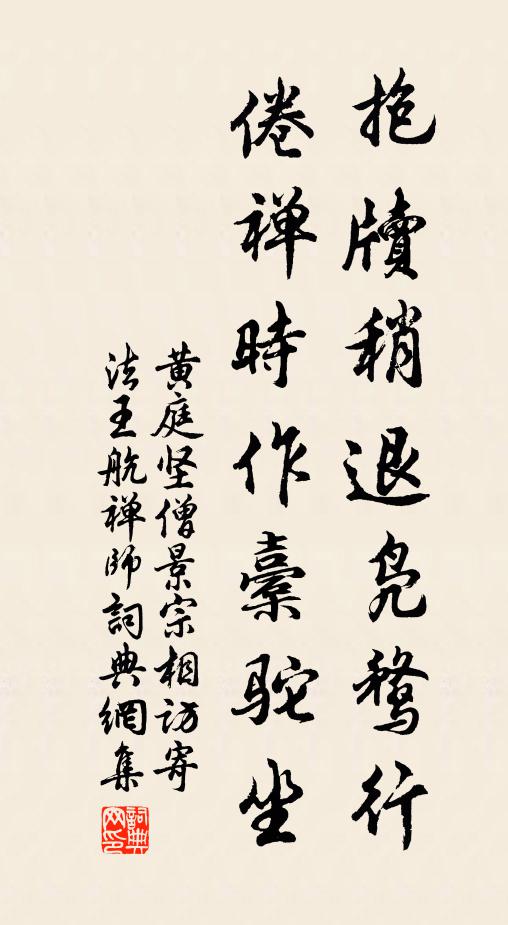 抱牘稍退凫鶩行
倦禅時作橐駝坐
黄庭坚僧景宗相訪寄
法王航禅師詞典網集
詞典网印